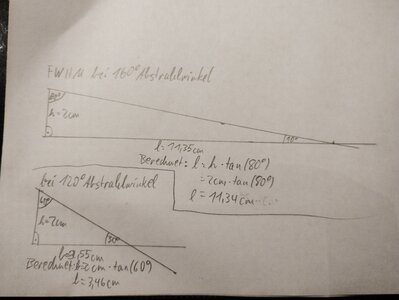 FWHM bei 160° Abstrahlwinkel
80°
h = 2cm
10°
l = 11,35cm
Berechnet: l = h · tan(80°)
= 2cm · tan(80°)
l = 11,34cm
bei 120° Abstrahlwinkel
60°
h = 2cm
30°
55cm
Berechnet: l = 2cm · tan(60°)
l = 3,46cm